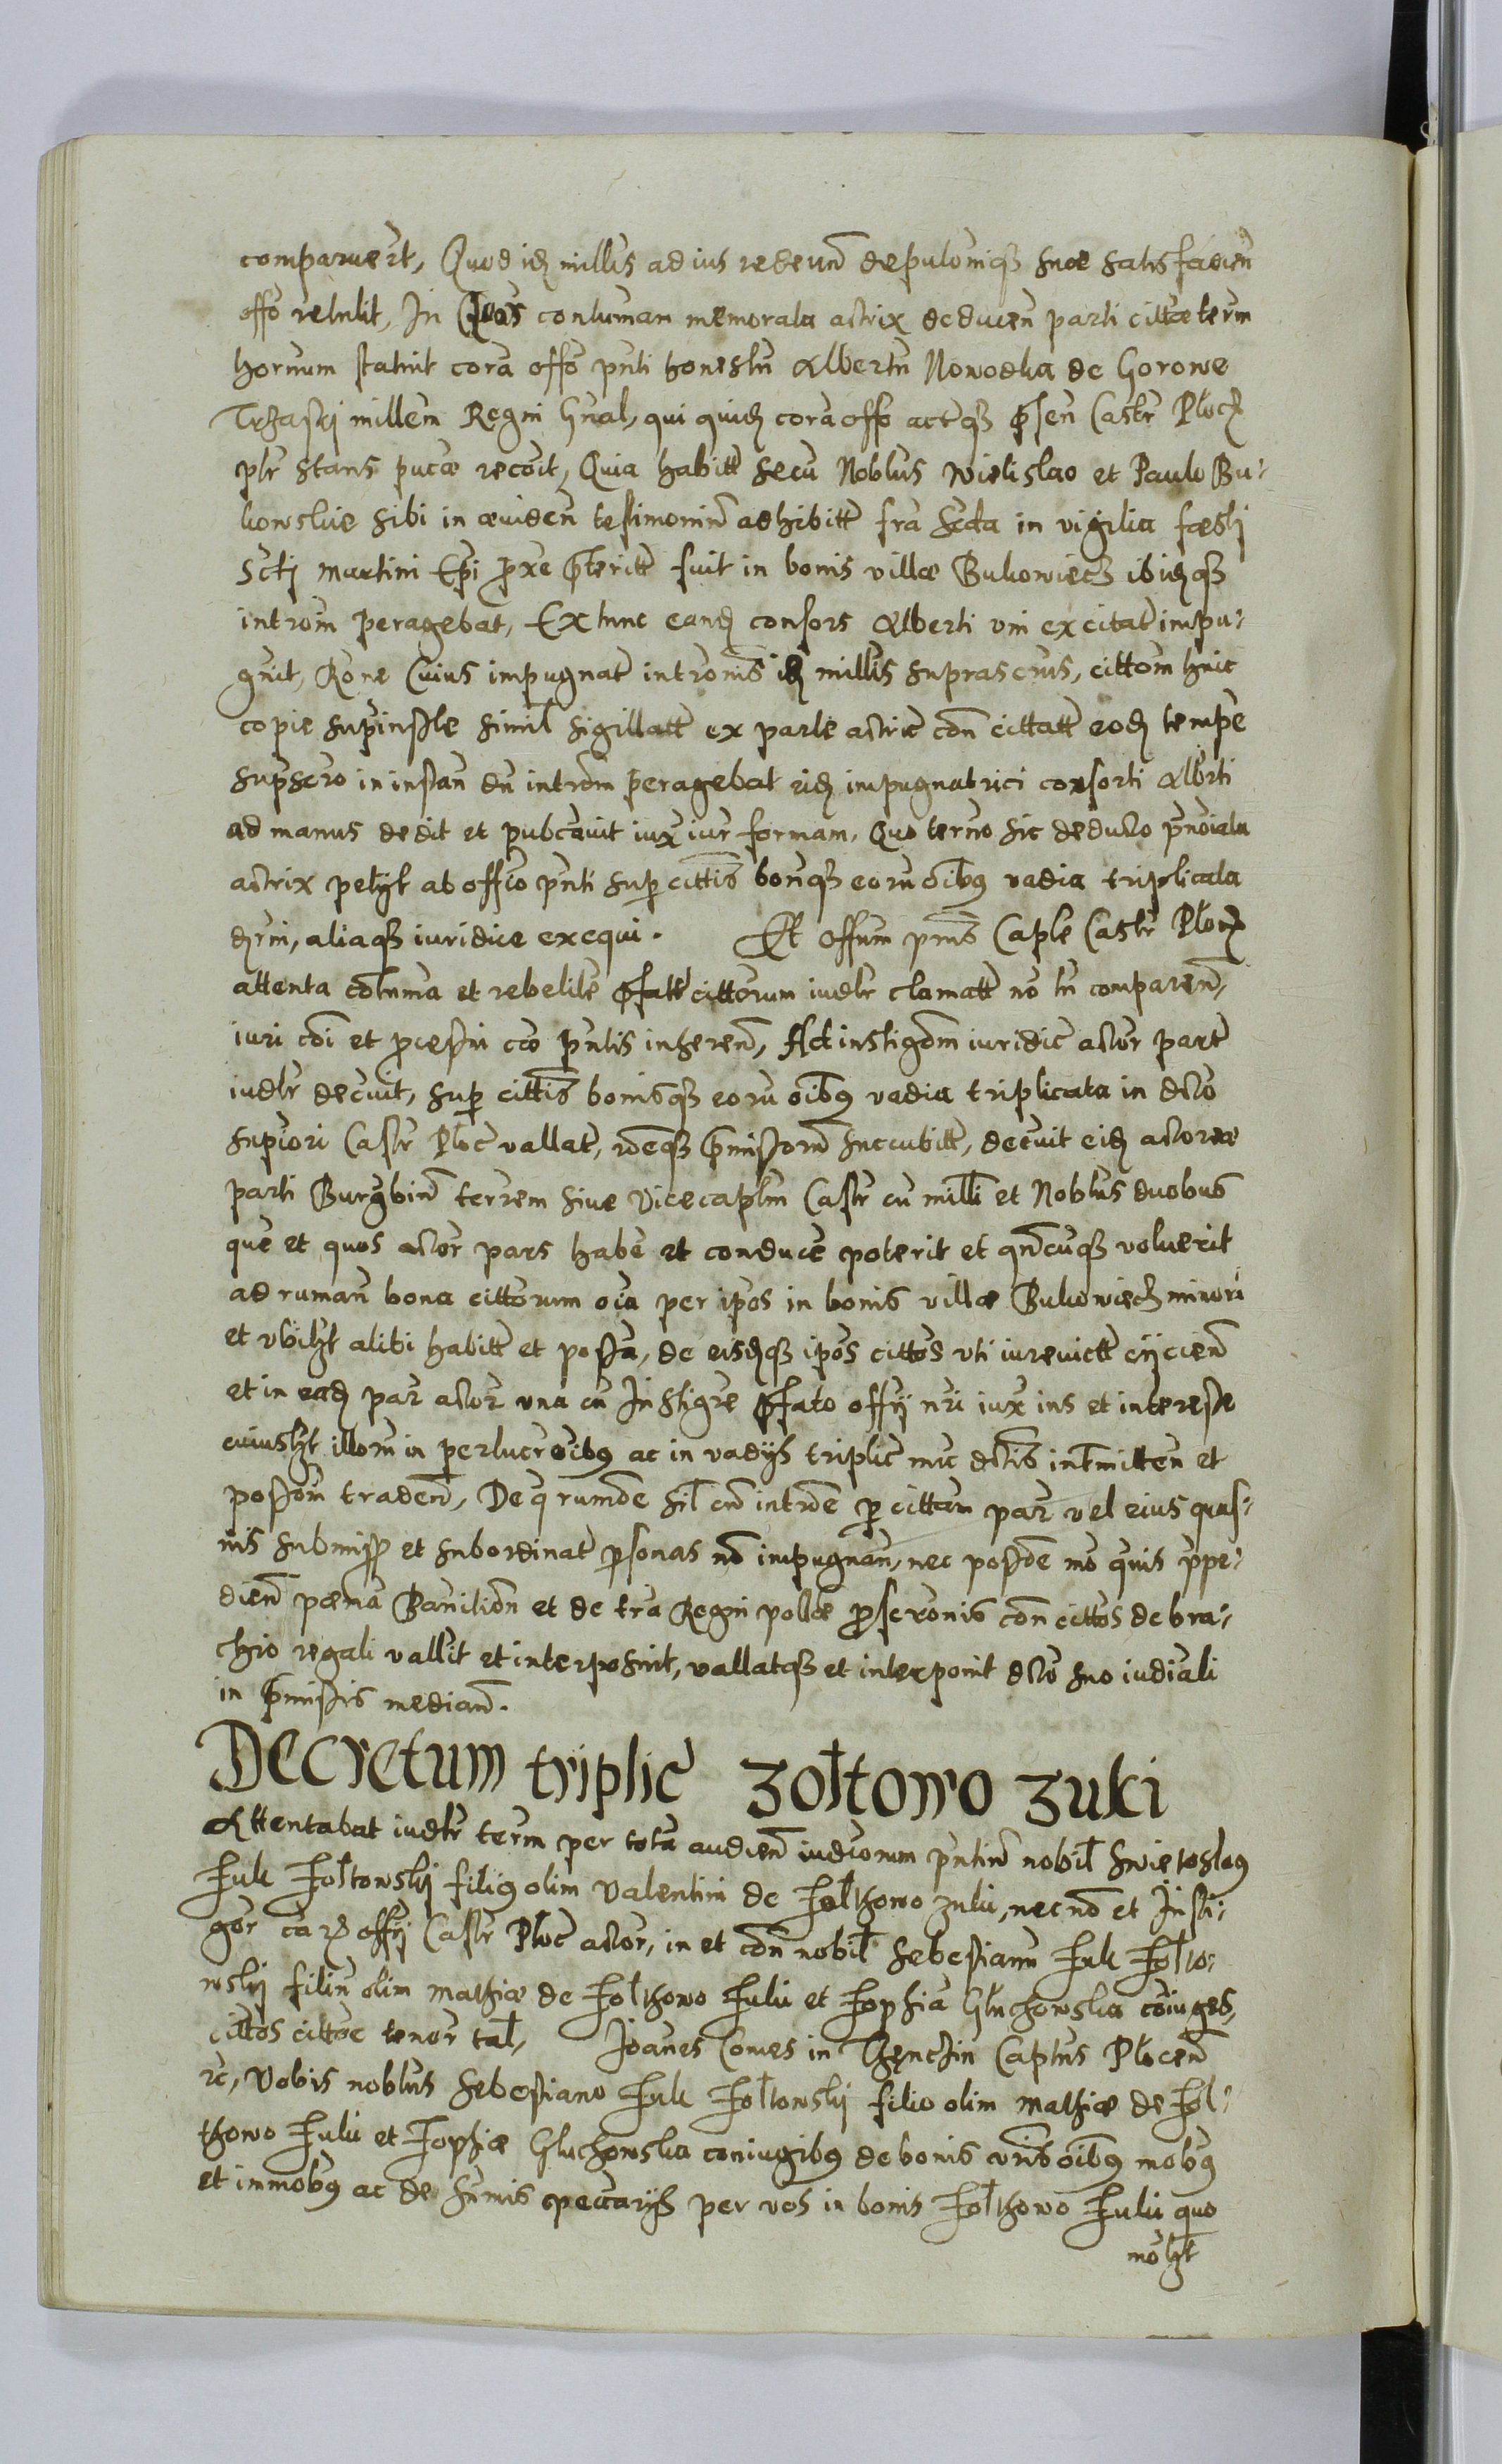 comparuert, Quod idz millis ad ius redeun depulsionisqz suae satisfacien
offo retulit, In Quos contumam memorata actrix deducen parti cittae term
hornum statuit cora offo pnti honestu Albertu Nowodka de Gorowe
Trzaski millem Regni Gnal, qui quidz cora offo actqz psen Castr Płocz
plr stans pucae recoit, Quia habitt secu Noblus Wielislao et Paulo Bu-
kowskie sibi in aeuiden testimoniu adhibitt fra scda in vigilia faesti
Scti Martini Epi proxe pteritt fuit in bonis villae Bukowiecz ibidzqz
introm peragebat, Extunc eandz consors Alberti vm excitat impu-
gnit, Rone Cuius impugnat intronis idz millis suprascrus, cittom huic
copie supinstle simil sigillatt ex parte actric con cittatt eodz tempe
supscro in instan du introm peragebat eidz impugnatrici consorti Albrti
ad manus dedit et pubcauit iux iur formam, Quo termo sic deducto pnoiata
actrix petyt ab officio pnti super cittis bonqz eoru oibus vadia triplicata
dcrni, aliaqz iuridice exequi. Et Offum pnis Caple Castr Płocz
attenta cotuma et rebelite pfatt cittorum iudlr clamatt no tn comparen,
iuri coi et pcessui cco pntis inheren, Ad instigom iuridic actor part
iudlr decuit, super cittis bonisqz eoru oibus vadia triplicata in dcto
supiori Castr Płoc vallat, roneqz pmissoru succubitt, decuit eidz actorea
parti Burgbiu terrem siue Vicecaplm Castr cu milli et Noblus duobus
que et quos actor pars habe et conduce poterit et qncuqz voluerit
ad ruman bona cittorum oia per ipos in bonis villae Bukowiecz minori
et vbilzt alibi habitt et possa, de eisdzqz ipos cittos vti iureuictt eijcien
et in eadz par actor vna cu Instigre pfato offij nri iux ius et interesse
cuiuslzt illoru in perlucr oibus ac in vadijs triplic nuc dctis intmitten et
possom traden, Deqz rumoe sil cu introe per cittam par vel eius quas-
uis submiss et subordinat psonas no impugnan, nec possoe mo quis ppe-
dien paena Banition et de tra Regni polliae pscronis con cittos de bra-
chio regali vallit et interposuit, vallatqz et interponit dcto suo iudiali
in pmissis median.
Decretum triplic Zołtowo Zuki
Attentabat iudlr term per tota audien iudiorum pntiu nobil Swietoslaus
Zuk Zołtowskij filius olim Valentini de Zołthowo Zuki, nec no et Insti-
gor ca R offij Castr Płoc actor, in et con nobil Sebestianu Zuk Zołto-
wskij filiu olim Mathiae de Zołthowo Zuki et Zophia Głuchowska coiuges,
cittos cittoe tenor tal, Joanes Comes in Thęnczin Captus Płocen
rc, Vobis noblus Sebestiano Zuk Zołtowskij filio olim Mathiae de Zoł-
thowo Zuki et Zophiae Głuchowska coniugibus de bonis vris oibus mobus
et immobus ac de summis pecuarijs per vos in bonis Zołthowo Zuki quo
molzt